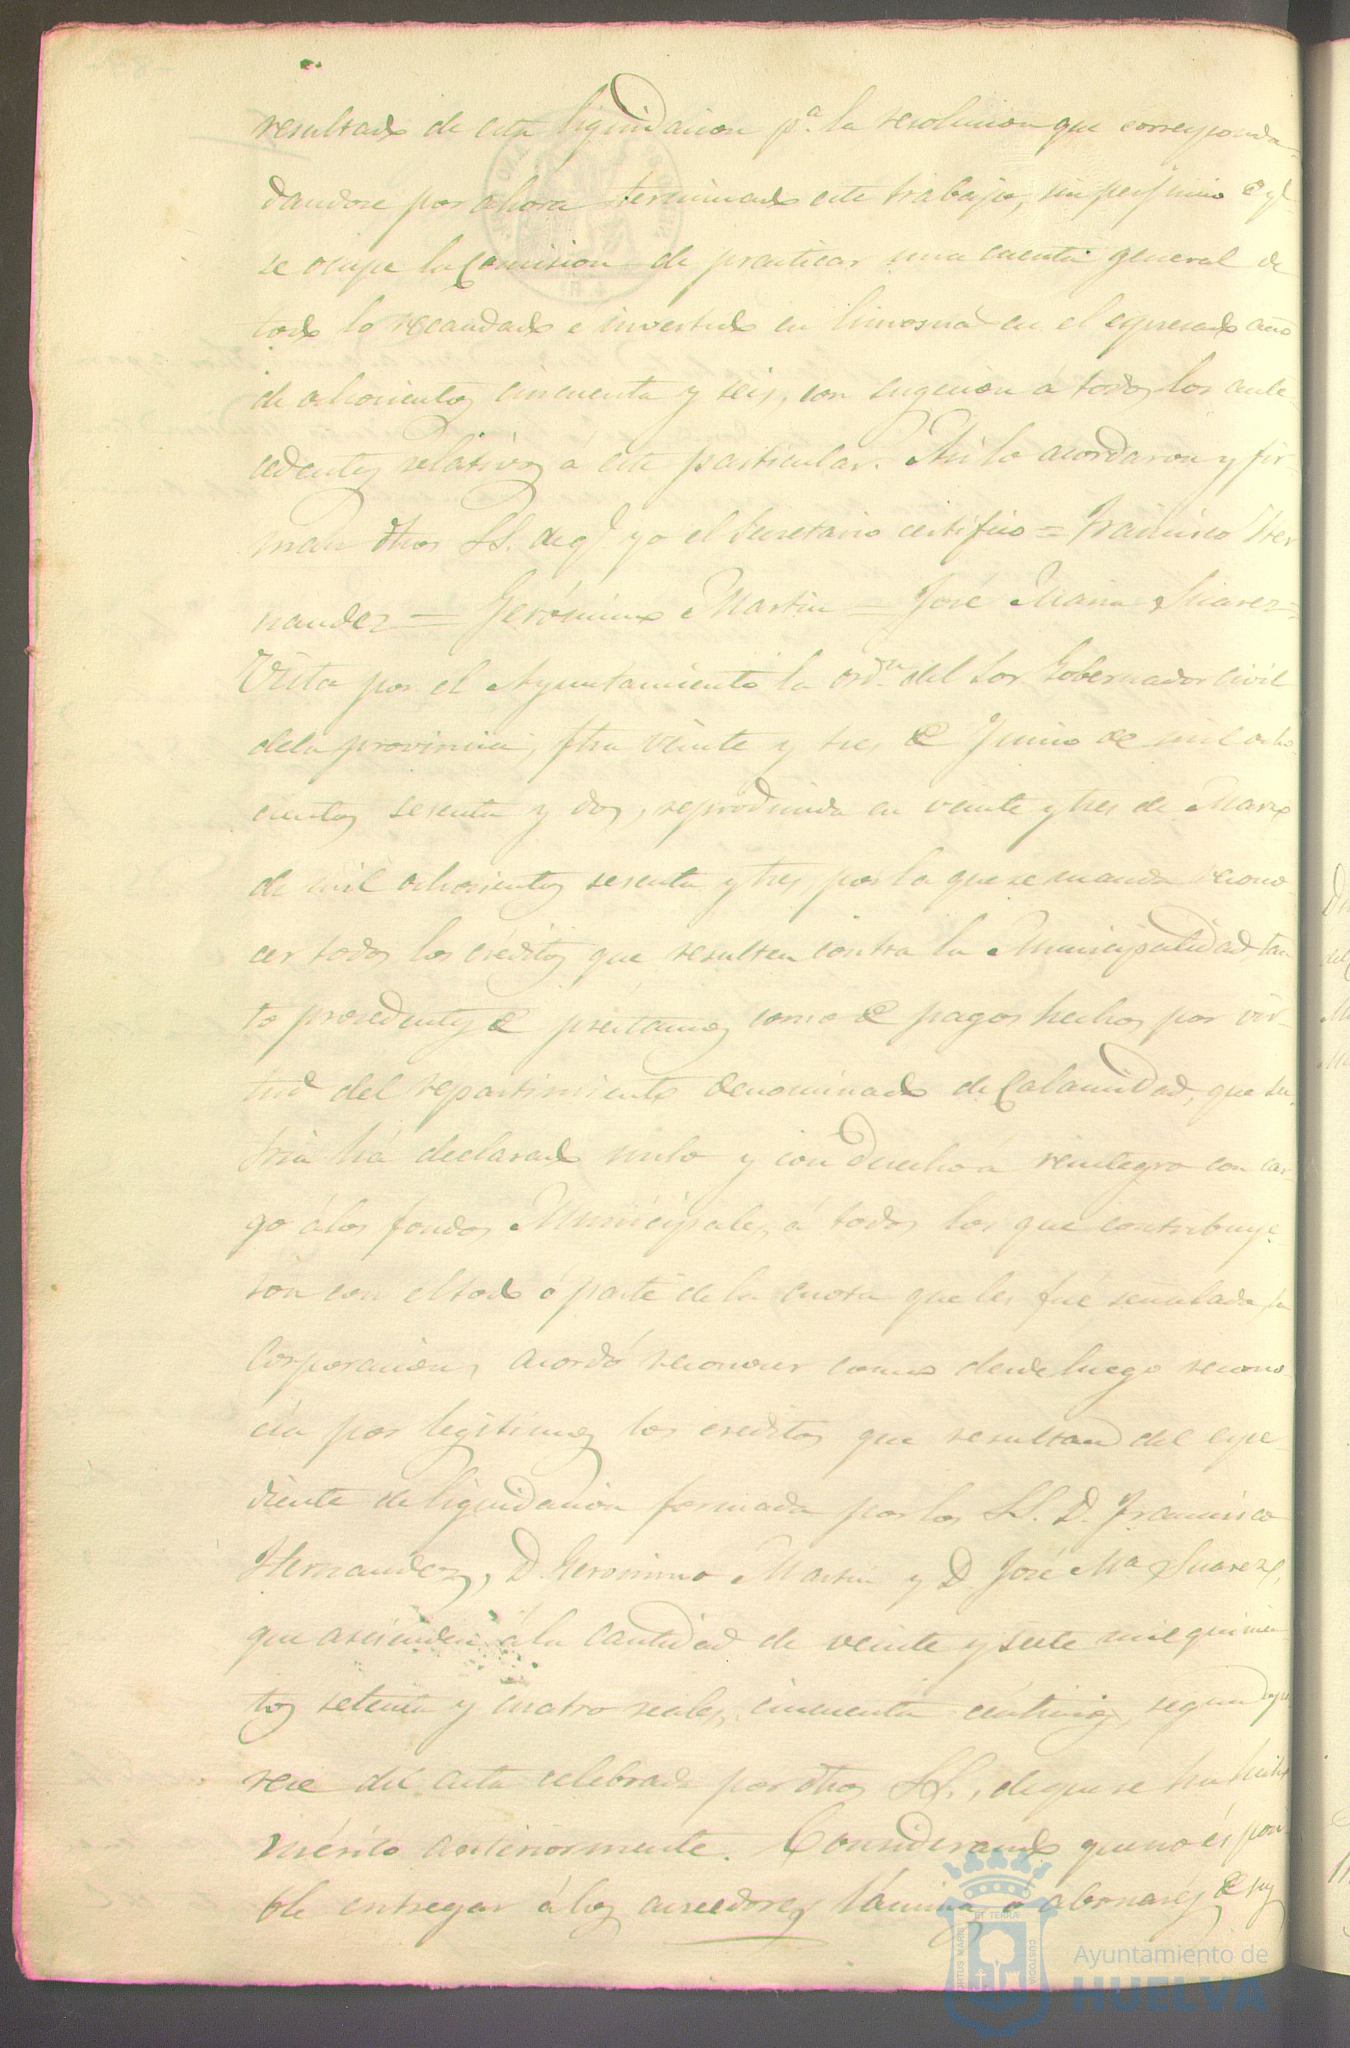 resultado de esta liquidacion p.ª la resolucion que corresponda
dandose por ahora terminado este trabajo, sin perjuicio de q.e
se ocupe la Comision de practicar una cuenta general de
todo lo recaudado e invertido en limosnas en el espresado año
de ochocientos cincuenta y seis, con sugecion á todos los ante-
cedentes relativos á este particular. Asi lo acordaron y fir-
man dhos SS. de q.e yo el Secretario certifico = Francisco Her
nandez = Gerónimo Martin = José Maria Suarez =
Vista por el Ayuntamiento la ord.n del Sor. Gobernador Civil
dela provincia, fha veinte y tres de Junio de mil ocho-
cientos sesenta y dos, reproducida en veinte y tres de Marzo
de mil ochocientos sesenta y tres, por la que se manda recono-
cer todos los créditos que resulten contra la Municipalidad, tan
to procedentes de préstamos como de pagos hechos por vir-
tud del repartimiento denominado de Calamidad, que su
tria há declarado nulo y con derecho á reintegro con car-
go álos fondos Municipales, á todos los que contribuye-
ron con el todo ó parte de la cuota que les fué señalada, la
Corporacion, acordó reconocer como desde luego recono-
cia por legitimos los creditos que resultan del espe-
diente de liquidacion formada por los SS. D. Francisco
Hernandez, D. Geronimo Martin y D. José M.ª Suarez,
que ascienden á la cantidad de veinte y siete mil quinien-
tos setenta y cuatro reales, cincuenta céntimos, segun apa
rece del acta celebrada por dhos SS., de que se ha hecho
mérito anteriormente. Considerando que no és posi-
ble entregar á los acreedores láminas ó abonarés de sus
VIRTUS MARIS
ET TERRA
CUSTODIA
Ayuntamiento de
HUELVA